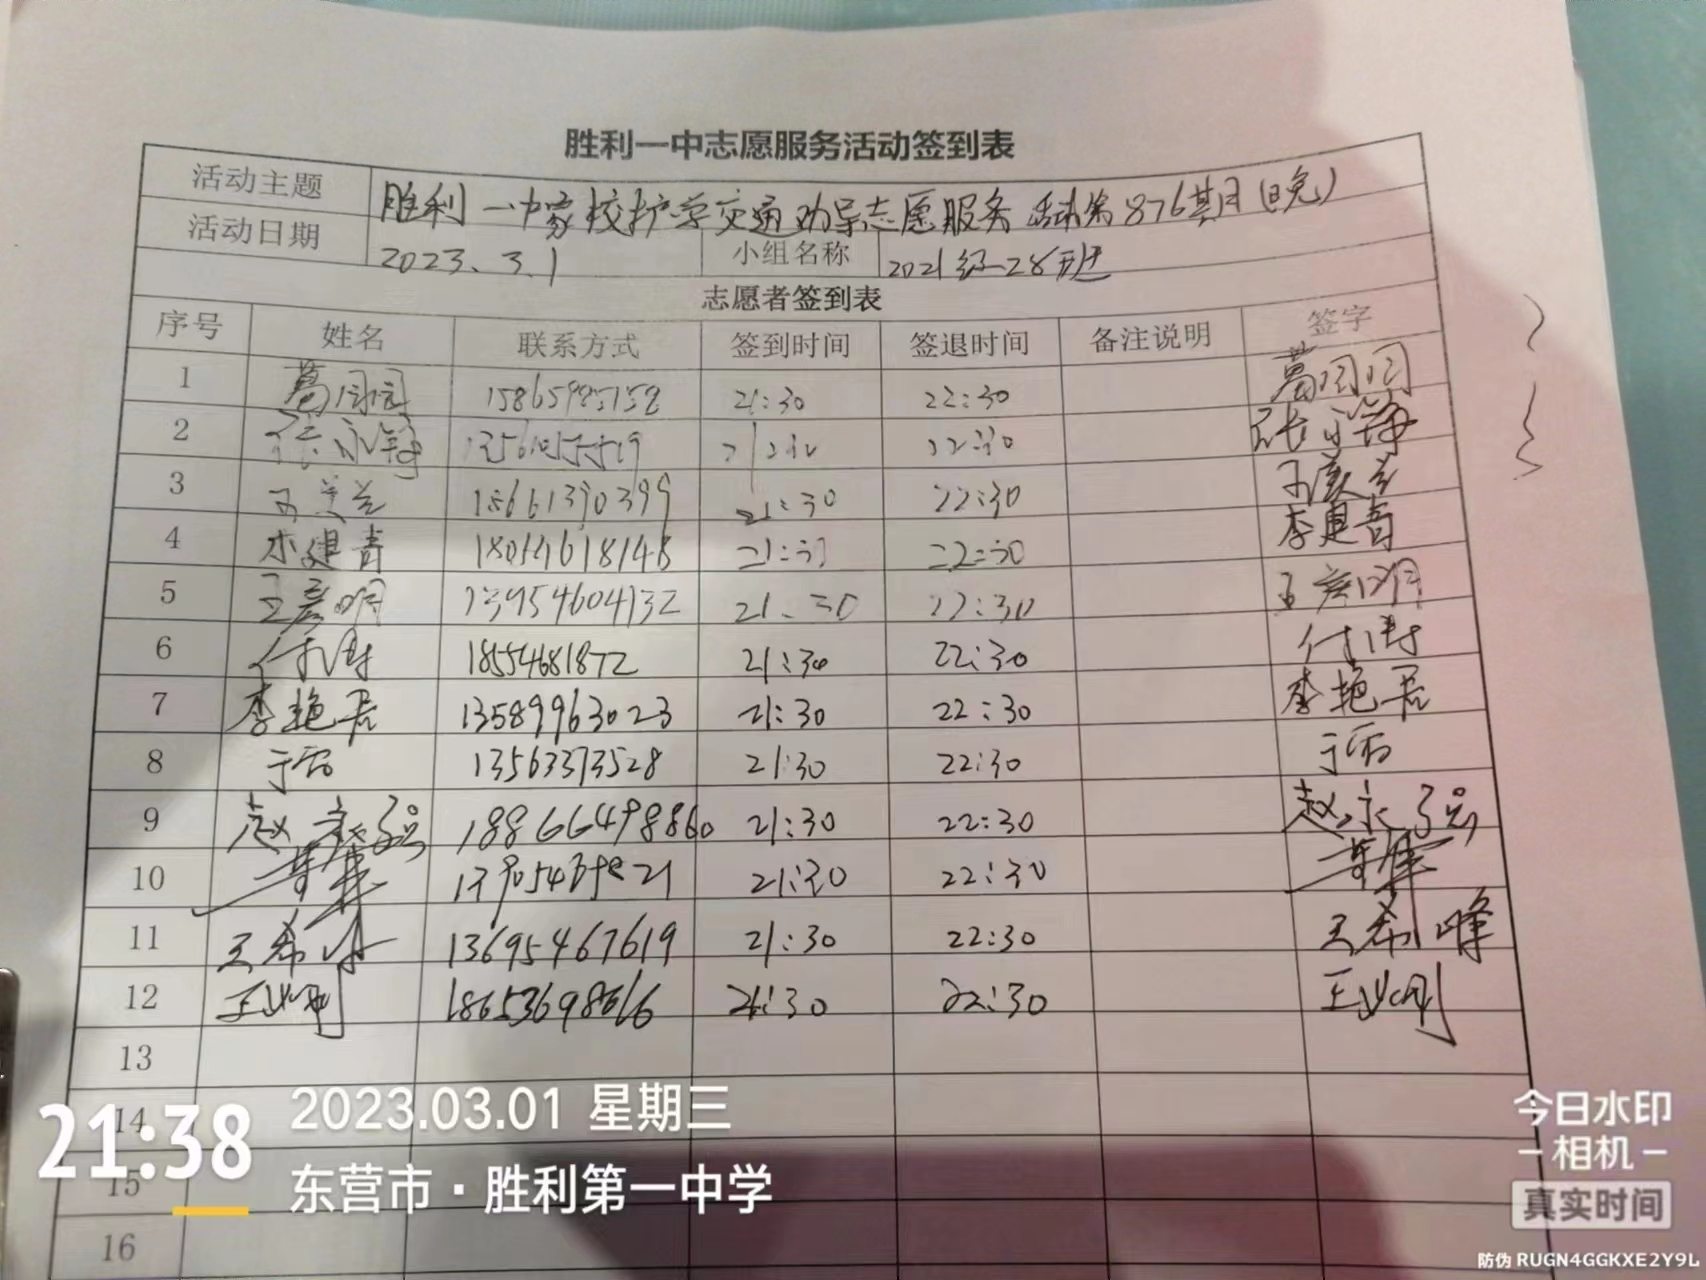 胜利一中志愿服务活动签到表
活动主题 胜利一中家校护学交通劝导志愿服务活动第876期(晚)
活动日期 2023.3.1 小组名称 2021级28班
志愿者签到表
序号 姓名 联系方式 签到时间 签退时间 备注说明 签字
1 葛闰闰 15865985158 21:30 22:30 葛闰闰
2 22:30
3 15661390399 21:30 22:30
4 李建青 18054618148 22:30 李建青
5 王彦明 13954604132 21:30 22:30 王彦明
6 付涛 18554681872 21:30 22:30 付涛
7 李艳君 13589963023 21:30 22:30 李艳君
8 于霞 13563373528 21:30 22:30 于霞
9 赵永强 18866498860 21:30 22:30 赵永强
10 21:30 22:30
11 王希峰 13695467619 21:30 22:30 王希峰
12 18653698616 21:30 22:30
13
14
15
16
21:38
2023.03.01 星期三
东营市·胜利第一中学
今日水印
相机
真实时间
防伪 RUGN4GGKXE2Y9L